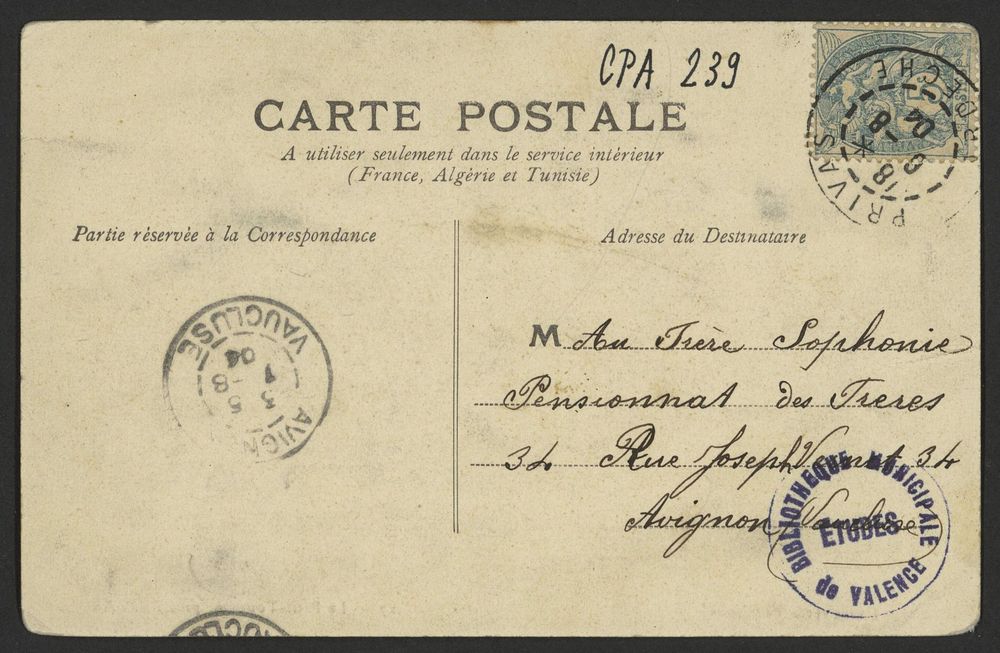 CPA 239
CARTE POSTALE
A utiliser seulement dans le service intérieur
(France, Algérie et Tunisie)
Partie réservée à la Correspondance
Adresse du Destinataire
PRIVAS
ARDECHE
18
3
-8
04
AVIGN
VAUCLUSE
13
5 -8
04
M Au Frère Sophonie
Pensionnat des Freres
34 Rue Joseph Vernet 34
Avignon Vaucluse
BIBLIOTHEQUE MUNICIPALE
ETUDES
de VALENCE
AUCLUS